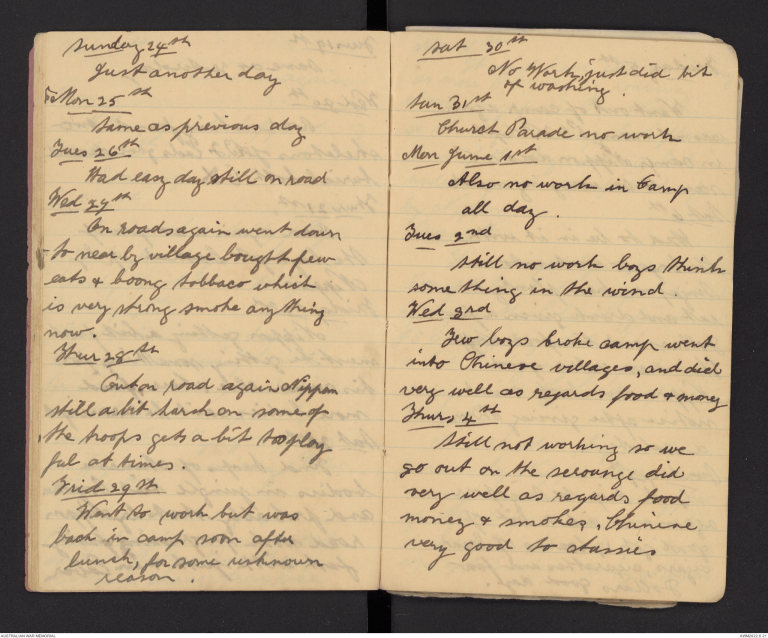 Sunday 24th
Just another day
Mon 25th
Same as previous day
Tues 26th
Had easy day still on road
Wed 27th
On roads again went down
to near by village bought few
eats & boong tobbaco which
is very strong smoke anything
now.
Thur 28th
Out on road again Nippon
still a bit harsh on some of
the troops gets a bit too play
ful at times.
Frid 29th
Went to work but was
back in camp soon after
lunch, for some unknown
reason.
Sat 30th
No Work, just did bit
of washing.
Sun 31st
Church Parade no work
Mon June 1st
Also no work in Camp
all day.
Tues 2nd
Still no work boys think
something in the wind.
Wed 3rd
Few boys broke camp went
into Chinese villages, and did
very well as regards food & money
Thurs 4th
Still not working so we
go out on the scrounge did
very well as regards food
money & smokes, Chinese
very good to Aussies
AUSTRALIAN WAR MEMORIAL